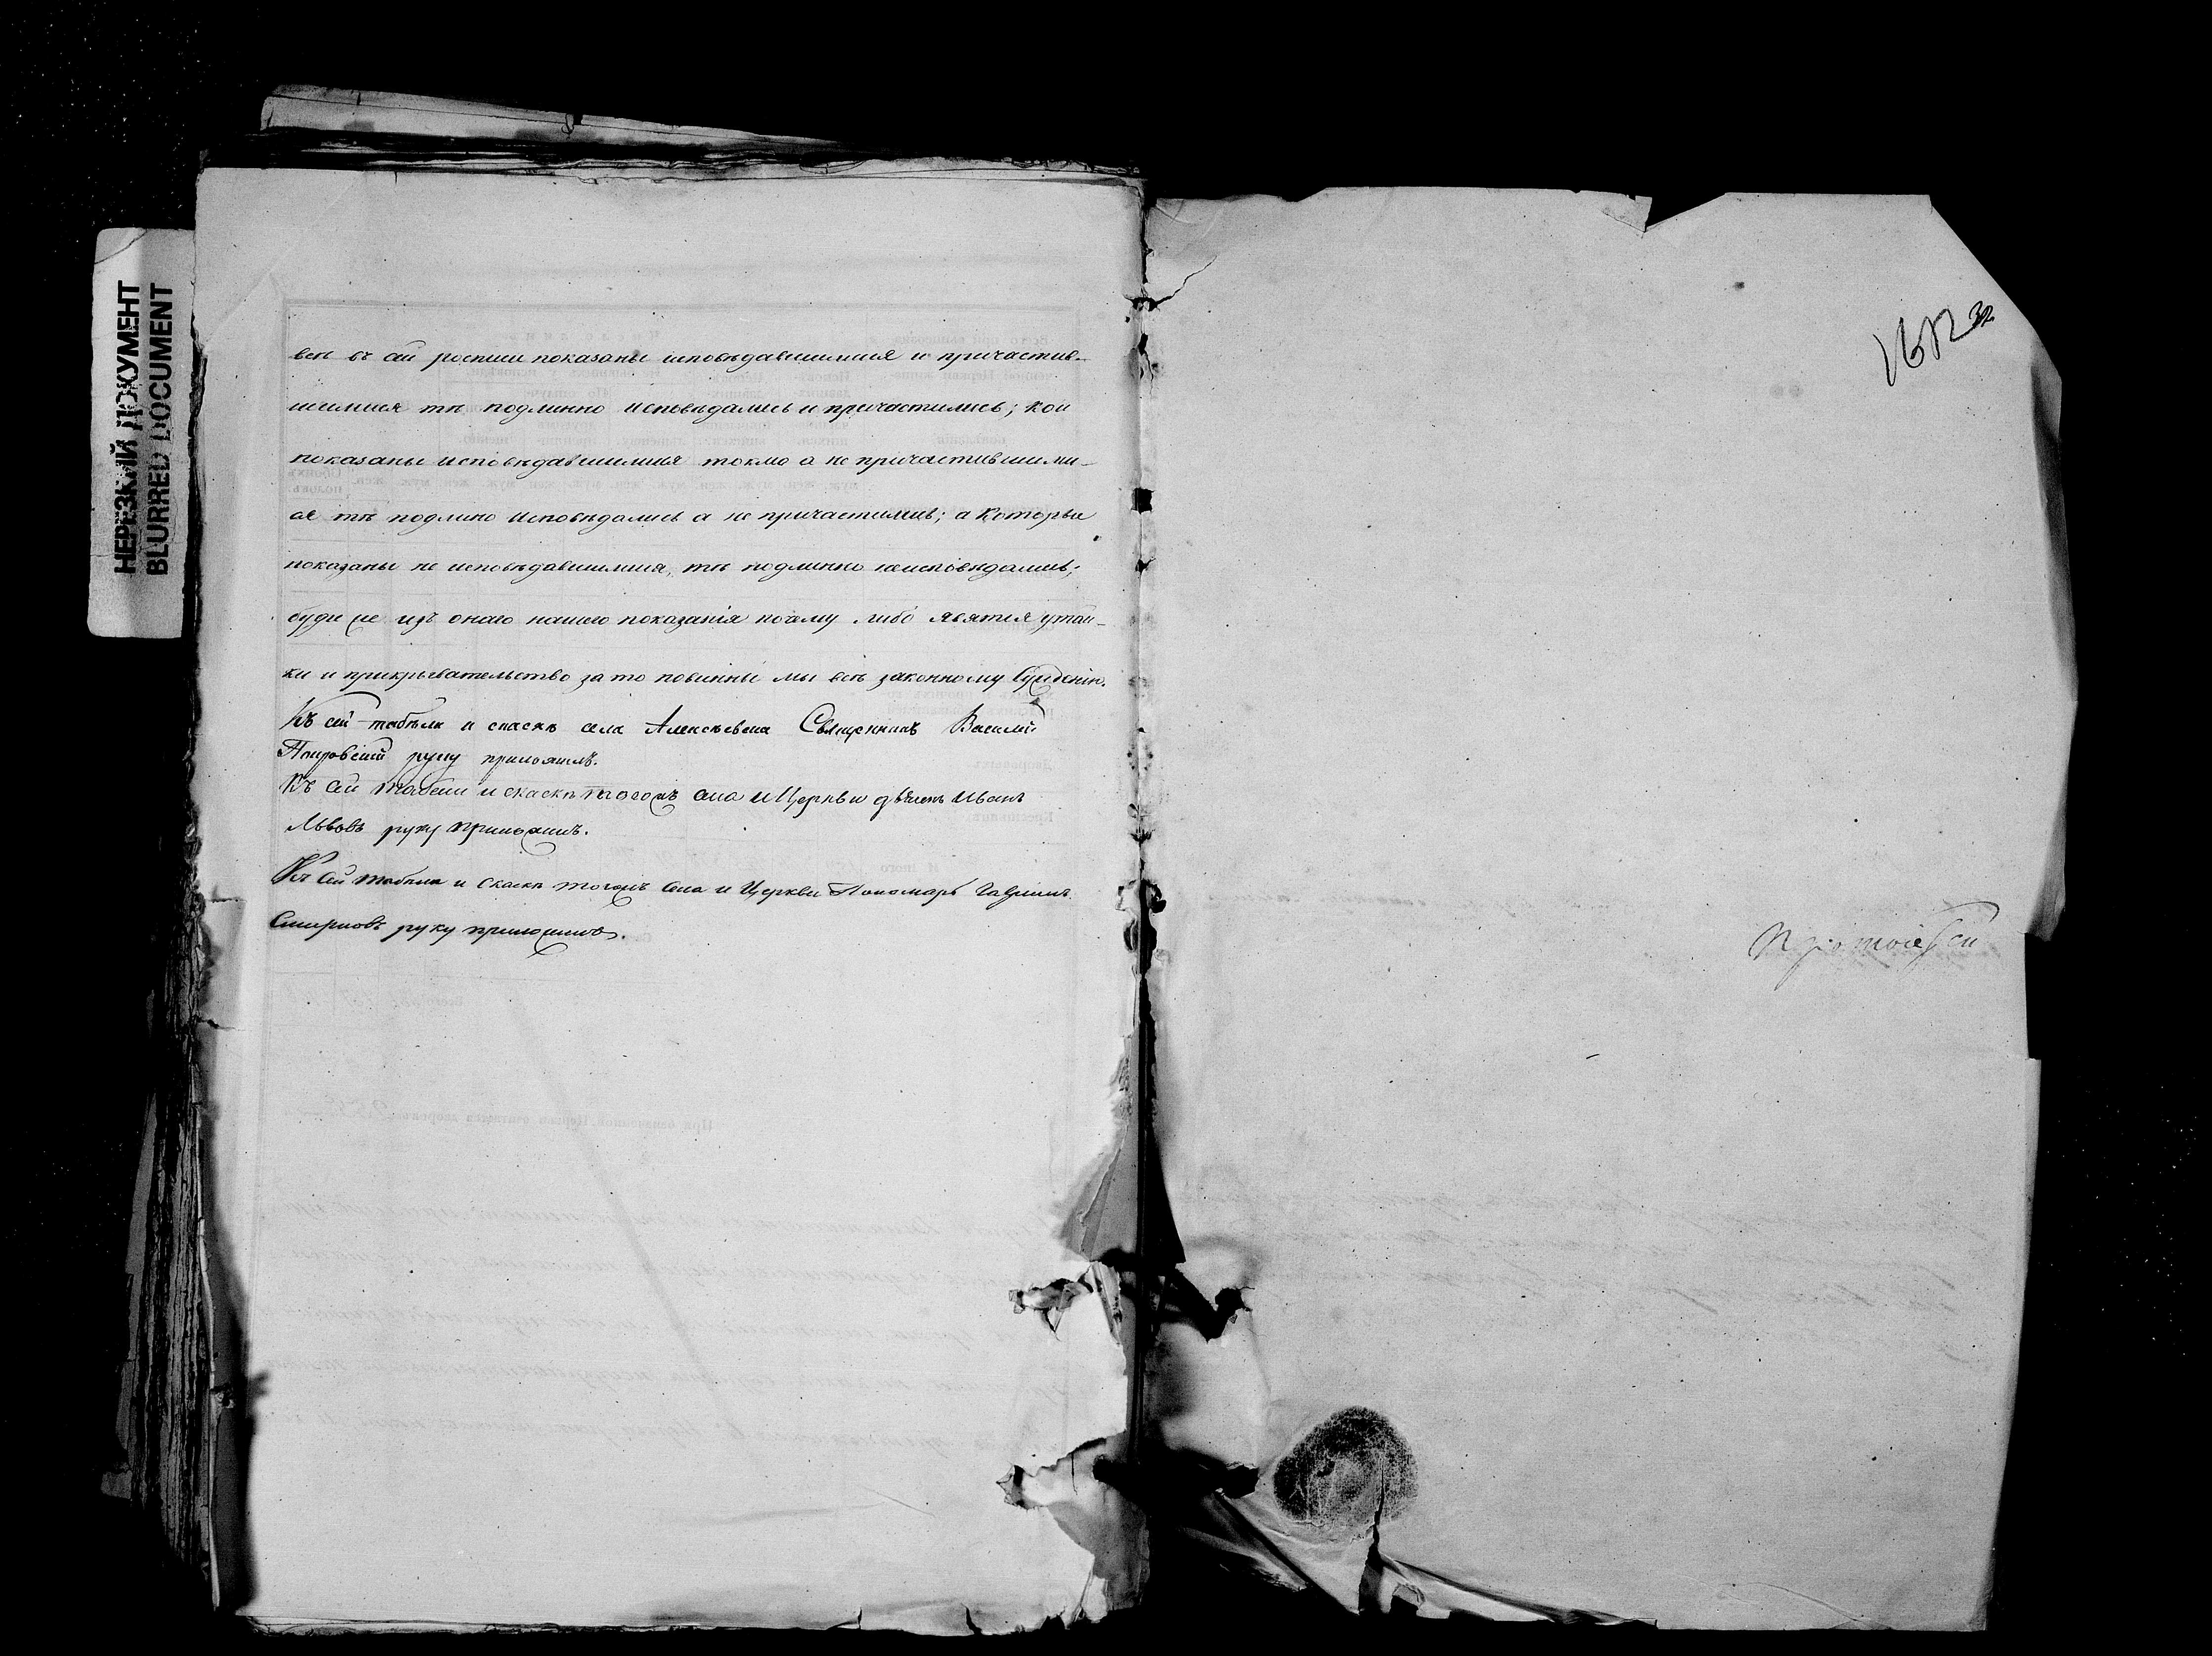 НЕРЕЗКИЙ ДОКУМЕНТ
BLURRED DOCUMENT
всѣ въ сей росписи показаны исповѣдавшимися и причастив-
шимися тѣ подлинно исповѣдались и причастились; кои
показаны исповѣдавшимися токмо а не причастившими-
ся тѣ подлино исповѣдались а не причастились; а которые
показаны не исповѣдавшимися, тѣ подлинно неисповѣдались;
буде же изъ онаго нашего показанія почему либо явятся утай-
ки и прикрывательство за то повинны мы всѣ законному Сужденію.
Къ сей табѣли и скаскѣ села Алексѣевска Священникъ Василій
руку приложилъ.
Къ сей табели и скаскѣ тогожъ села и Церкви дьячекъ Иванъ
Львовъ руку приложилъ.
Къ сей табели и скаскѣ тогожъ села и Церкви Пономарь Гавріилъ
Смирновъ руку приложилъ.
Протоіерей